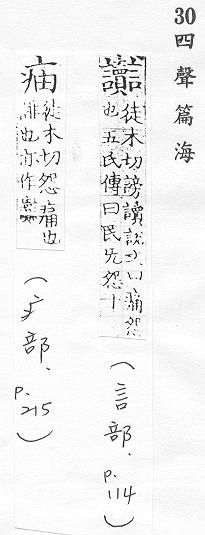 30 四聲篇海
讟
徒木切謗讀説文曰痛怨
也左氏傳曰民无怨
(言部、p.114)
徒木切怨痛也
誹也亦作
(疒部、p.215)